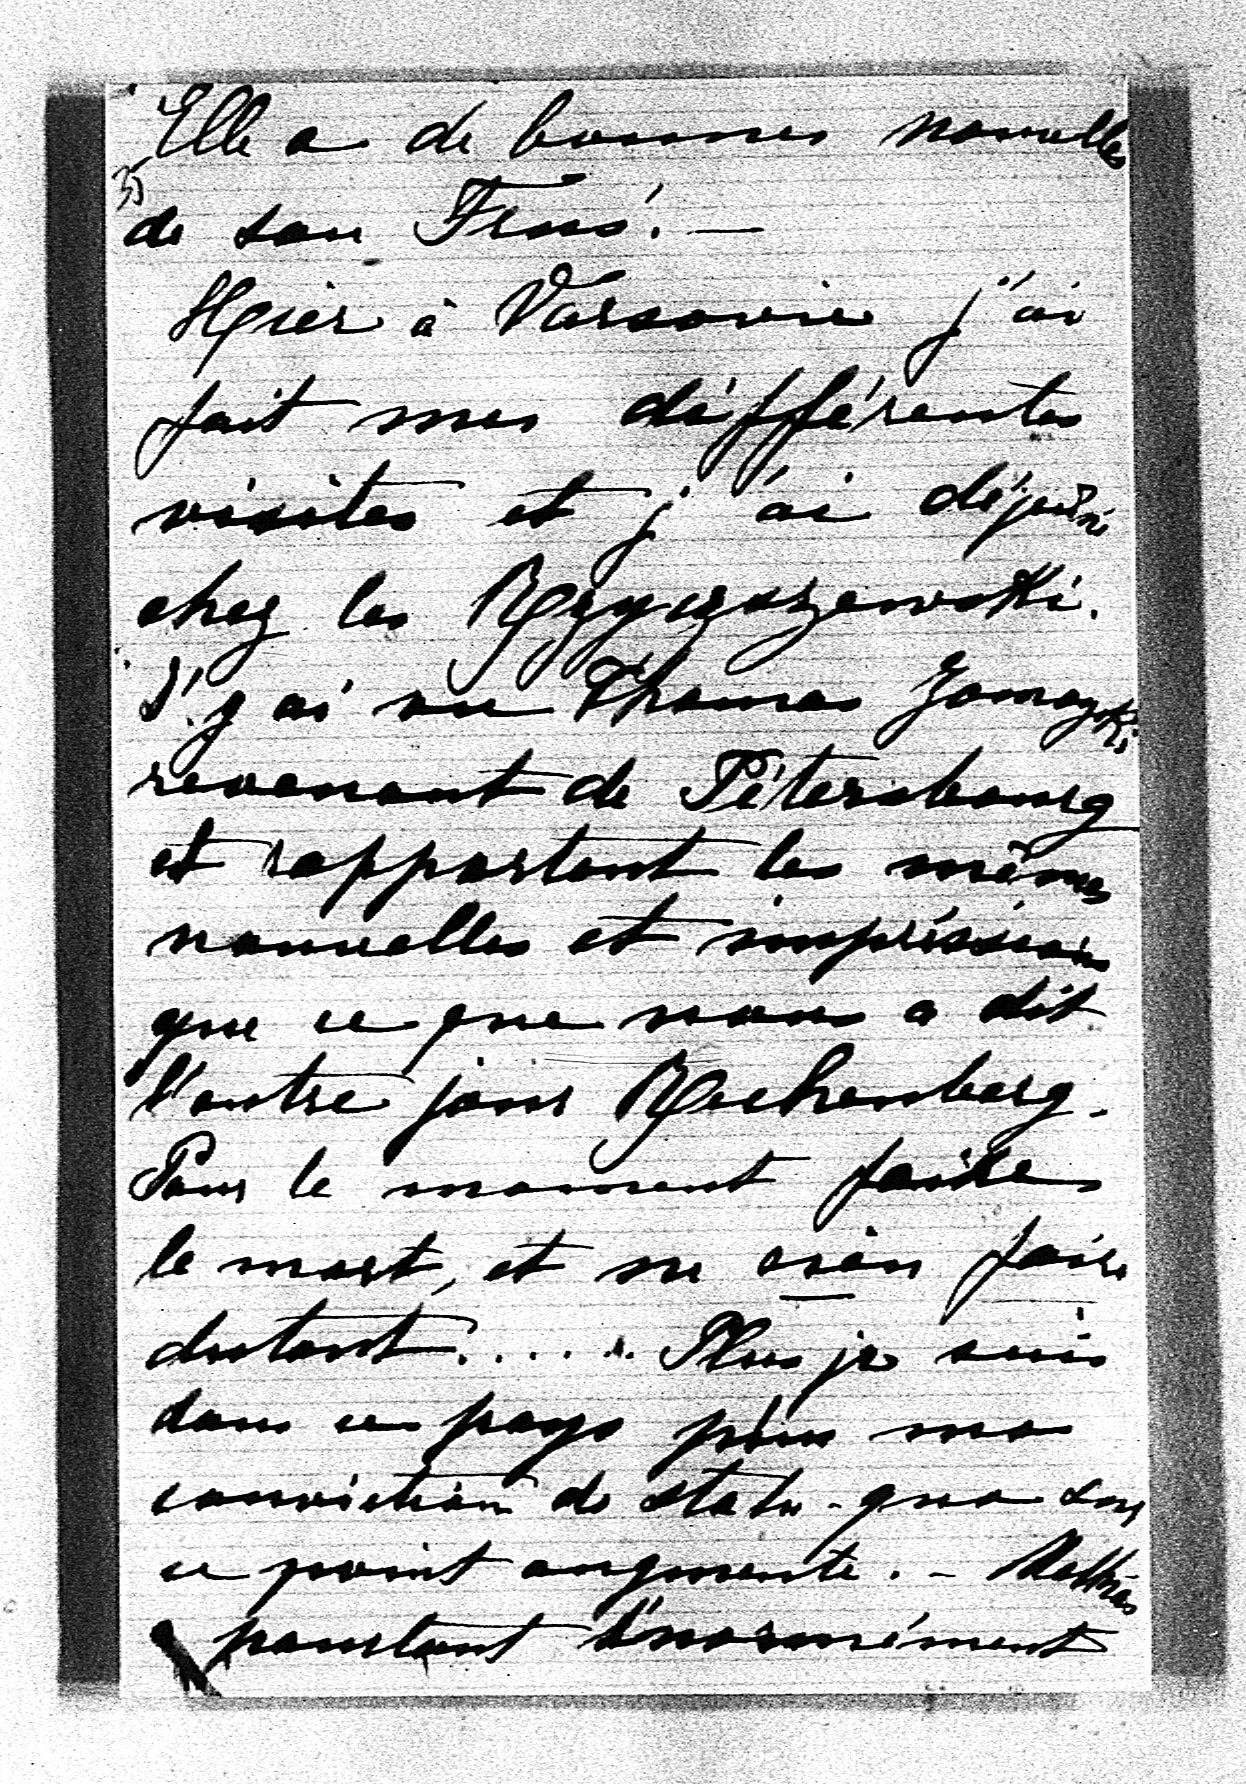 Elle a de bonnes nouvelles
35
de son
Hier à Varsovie j'ai
fait mes différentes
visites et j'ai déjeûné
chez les
J'y ai vu Thomas Zamoyski
revenant de Pétersbourg
et rapportant les mêmes
nouvelles et impréssions
que ce que nous a dit
l'autre jour Rechenberg.
Pour le moment faire
le mort, et ne rien faire
dutout...... Plus je suis
dans ce pays plus ma
conviction de statu-quo sur
ce point augmente. - Mathias
pourtant énormément